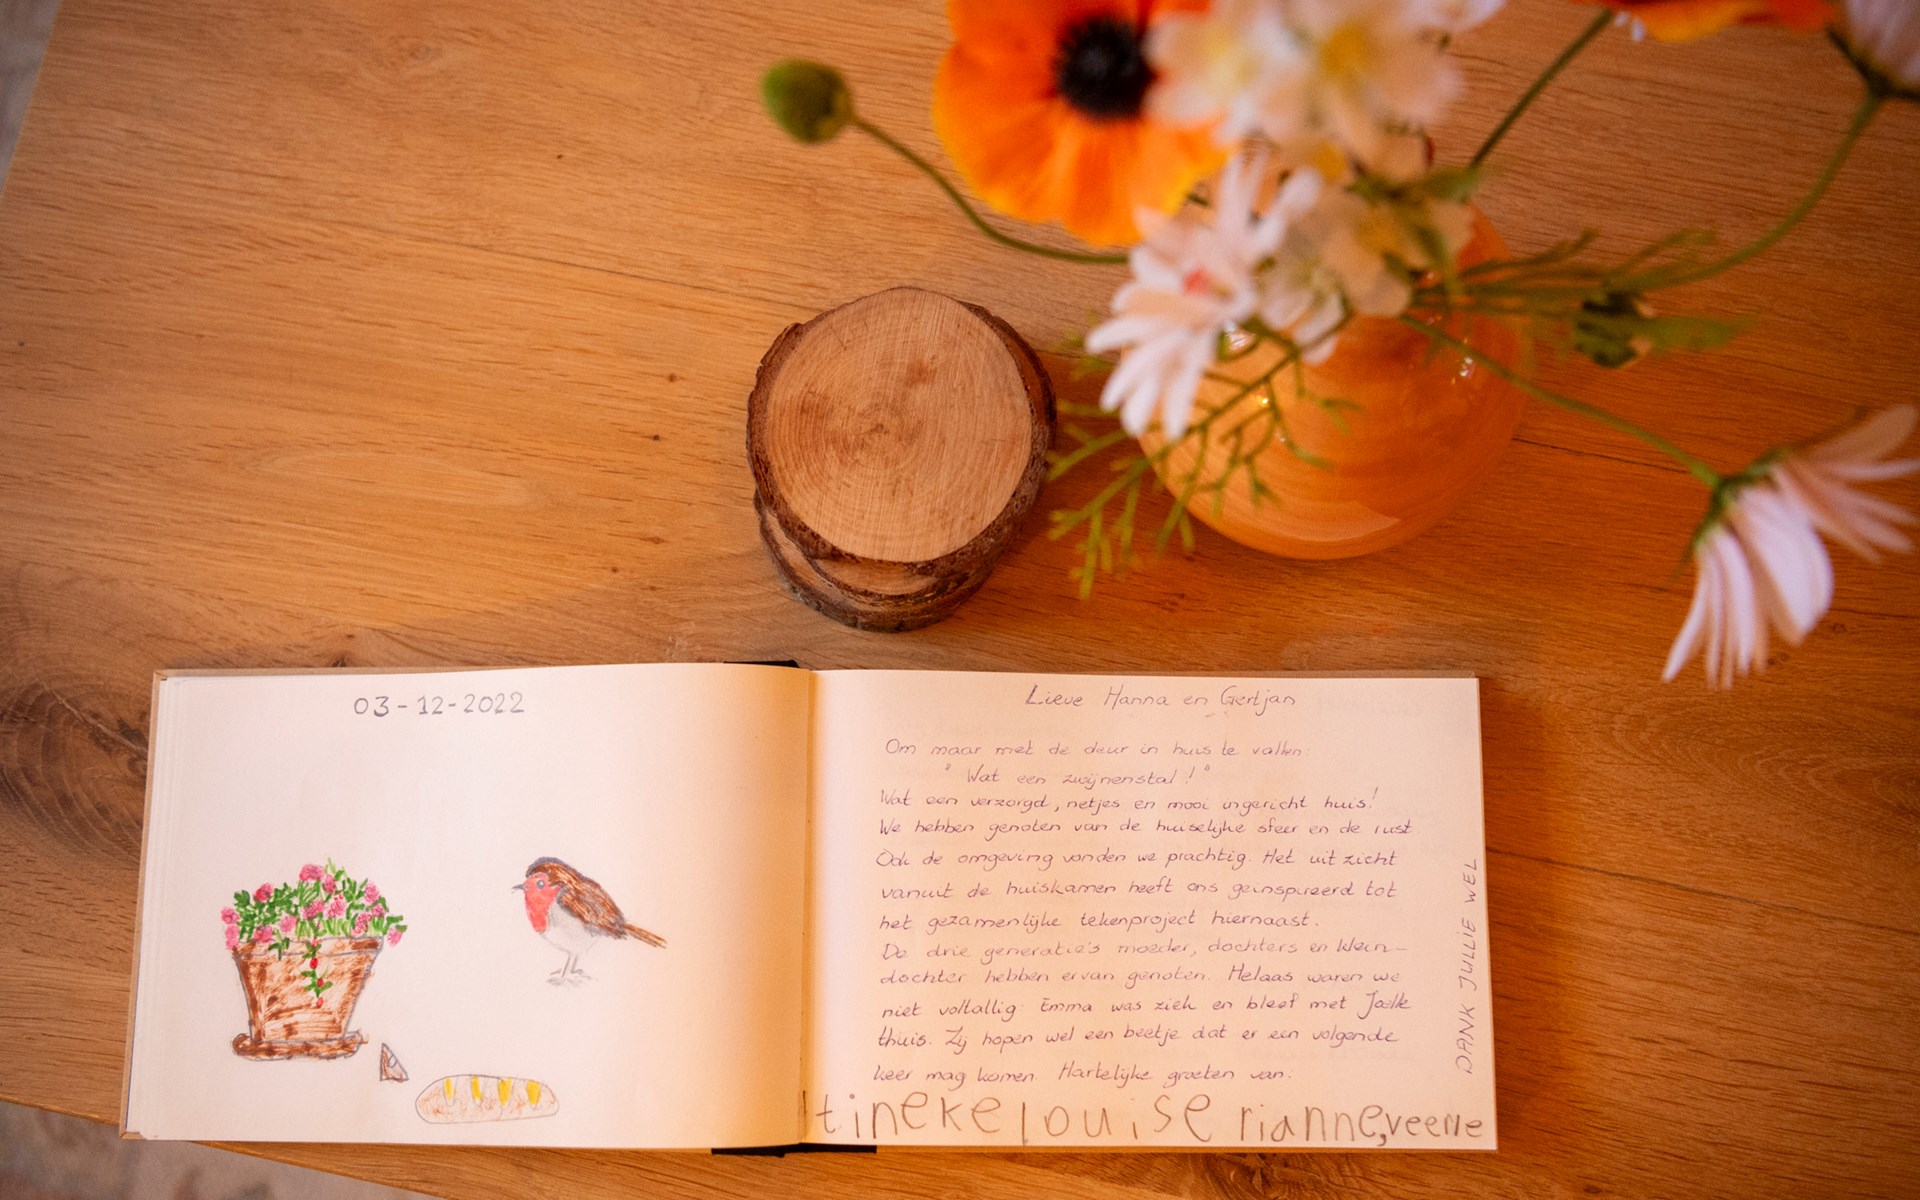 03-12-2022
Lieve Hanna en Gertjan
Om maar met de deur in huis te vallen:
"Wat een zwijnenstal!"
Wat een verzorgd, netjes en mooi ingericht huis!
We hebben genoten van de huiselijke sfeer en de rust
Ook de omgeving vonden we prachtig. Het uitzicht
vanuit de huiskamer heeft ons geïnspireerd tot
het gezamenlijke tekenproject hiernaast.
De drie generatie's moeder, dochters en klein-
dochter hebben ervan genoten. Helaas waren we
niet voltallig: Emma was ziek en bleef met Joëlle
thuis. Zij hopen wel een beetje dat er een volgende
keer mag komen. Hartelijke groeten van:
tineke louise rianne, veerle
DANK JULLIE WEL